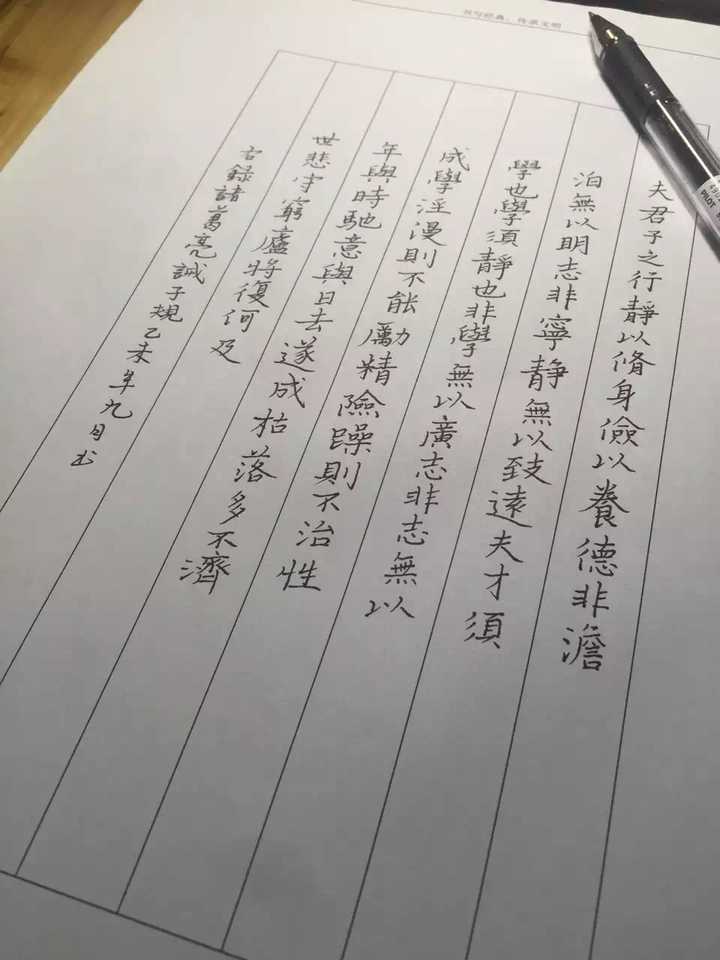 书写经典，传承文明
夫君子之行靜以脩身儉以養德非澹
泊無以明志非寧靜無以致遠夫才須
學也學須靜也非學無以廣志非志無以
成學淫漫則不能勵精險躁則不治性
年與時馳意與日去遂成枯落多不濟
世悲守窮廬將復何及
右錄諸葛亮誡子規乙未年九月书
PILOT